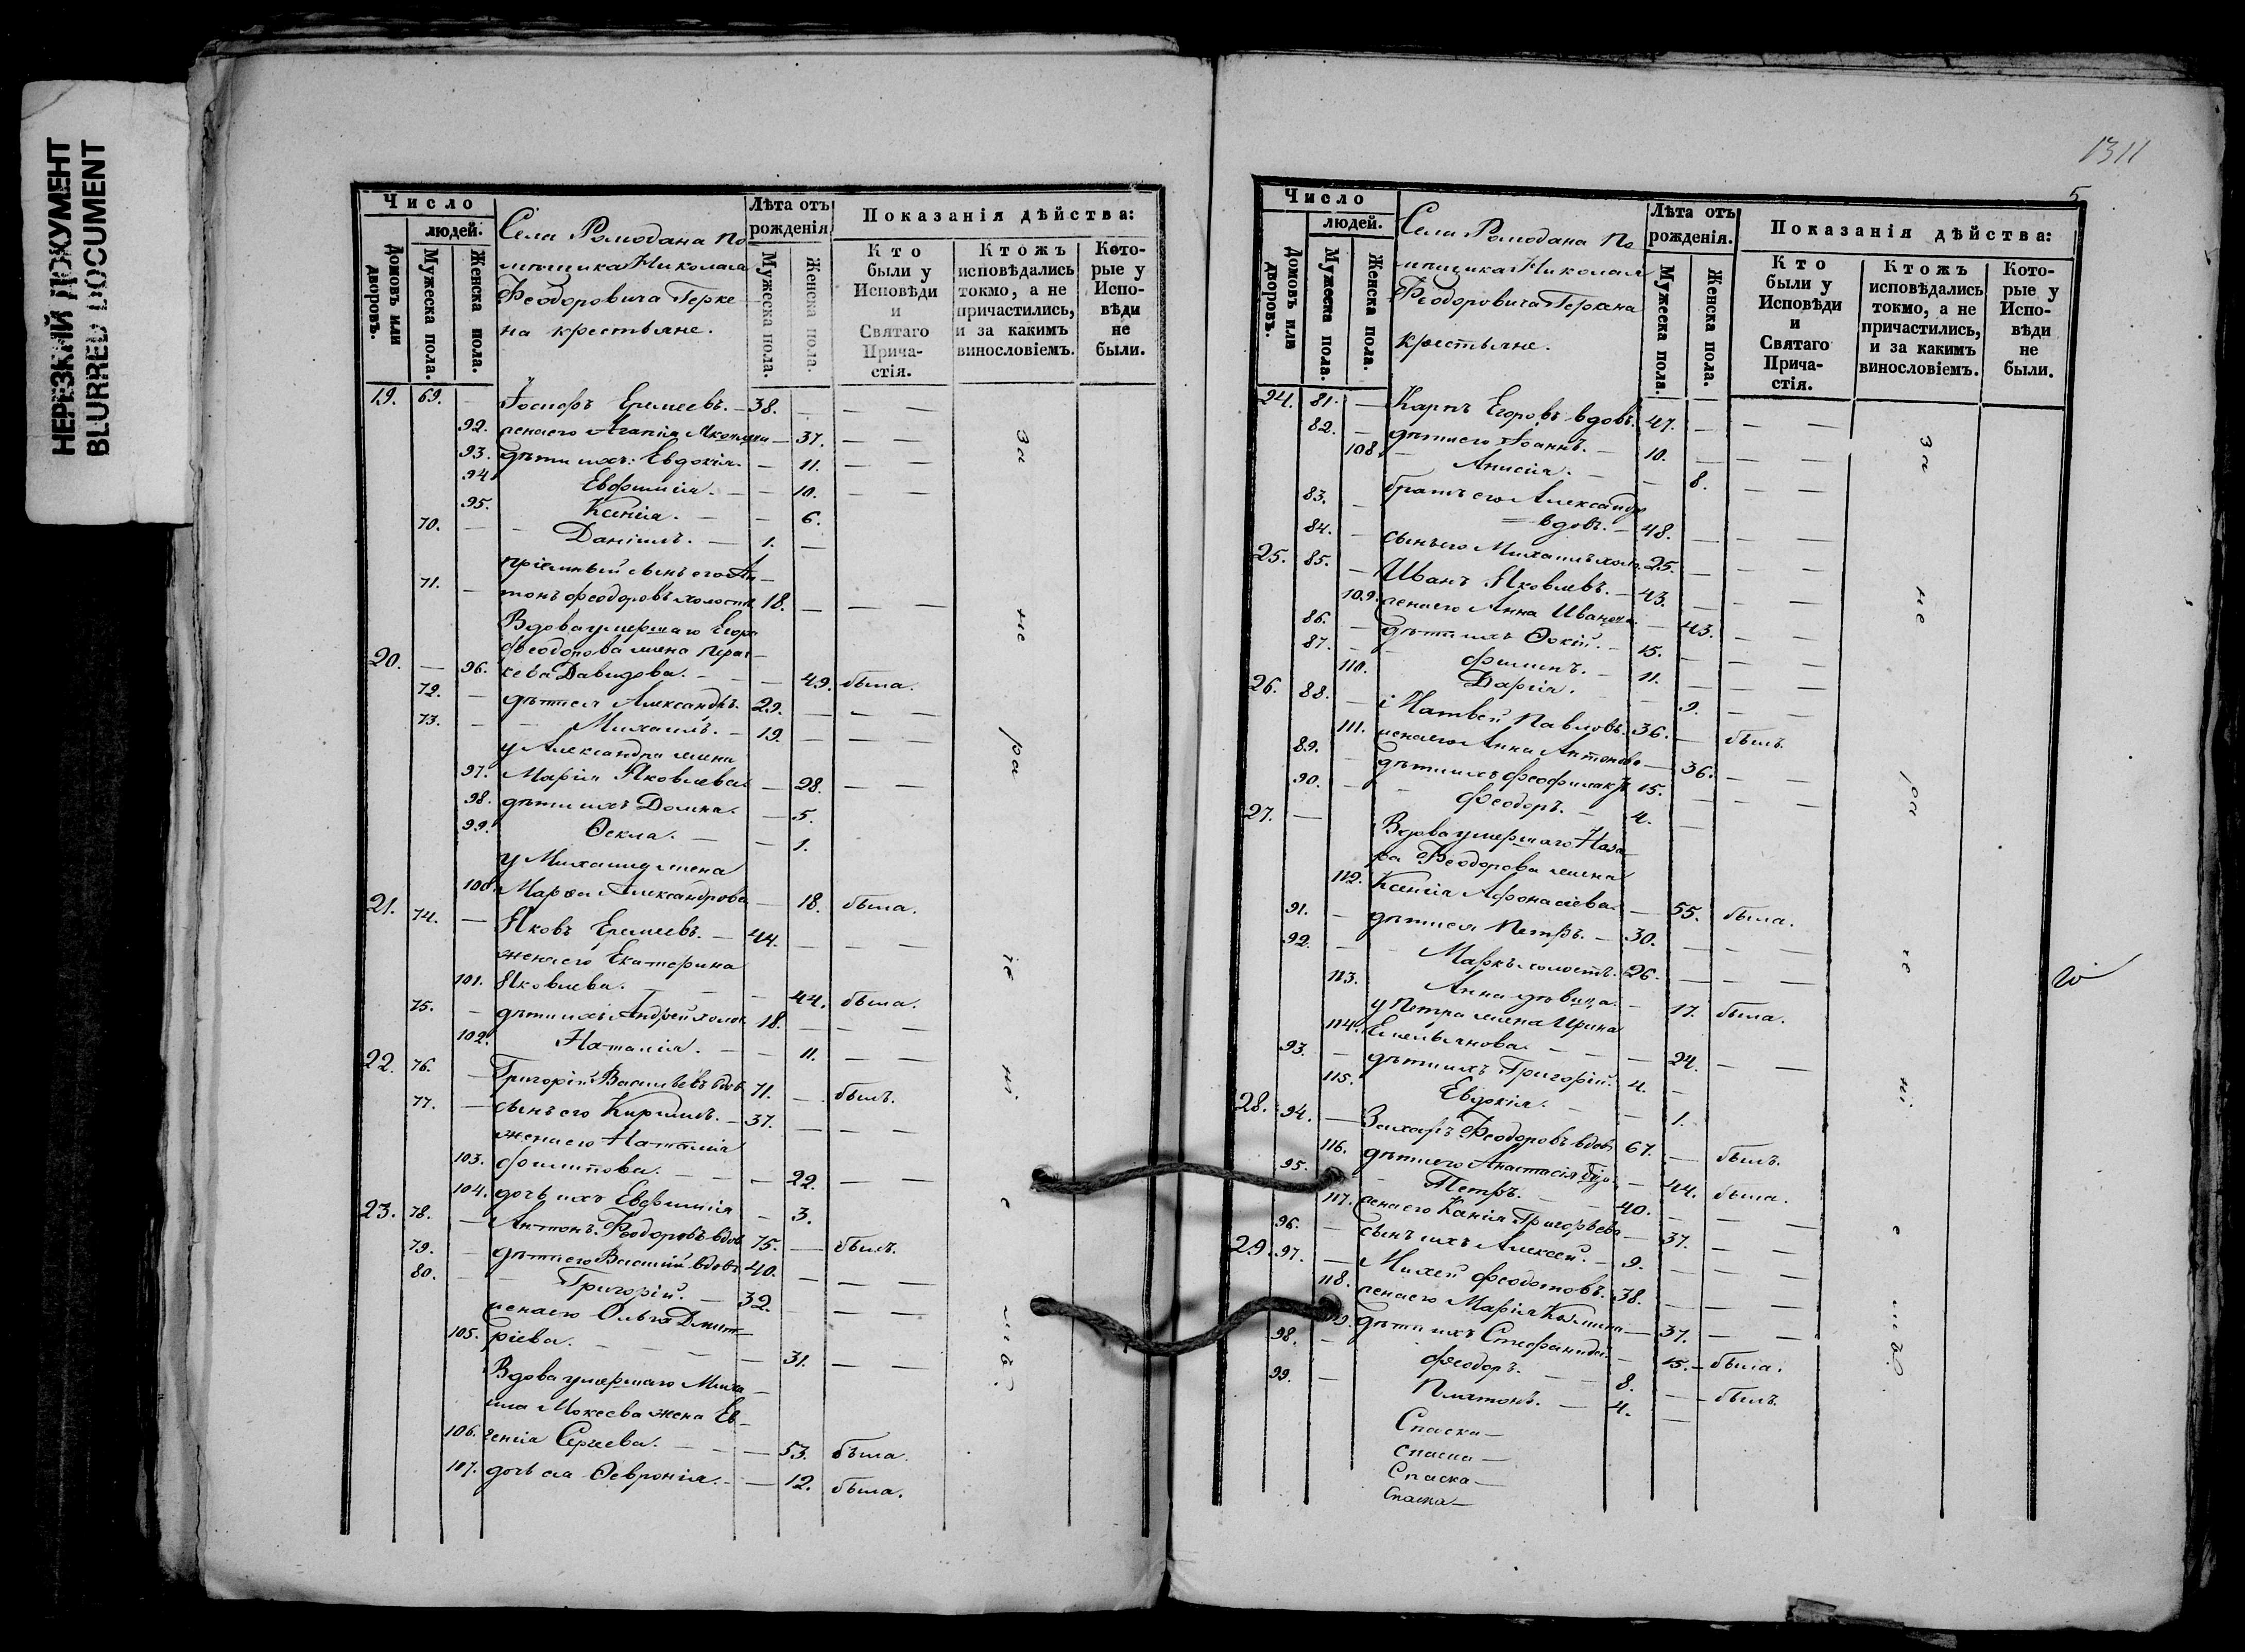 НЕРЕЗКИЙ ДОКУМЕНТ
BLURRED DOCUMENT
Число
людей.
Домовъ или дворовъ.
Мужеска пола.
Женска пола.
Села Ромодана по
мѣщика Николая
Ѳеодоровича Герке
на крестьяне.
Лѣта отъ рожденія
Мужеска пола.
Женска пола.
Показанія дѣйства:
Кто были у Исповѣди и Святаго Прича- стія.
Ктожъ исповѣдались токмо, а не причастились, и за какимъ винословіемъ.
Кото- рые у Испо- вѣди не были.
19. 69. — Іосифъ Еремеевъ. — 38. — —
92. жена его Агапія — 37. — —
93. дѣти ихъ: Евдокія. — 11. — —
94 Евфимія. — — 10. — —
95. Ксенія. — — 6.
70. — — Даніилъ. — 1. —
пріемный сынъ его Ан—
71. — тонъ Феодоровъ холостъ 18. — — —
Вдова умершаго Егора
Феодорова жена Парас—
20. — 96. кева Давидова. — — 49. была.
72. — дѣти ея Александръ. 29. — — —
73. — — Михаилъ. — 19. — — —
у Александра жена
97. Марія Яковлева — 28. — —
98. дѣти ихъ Домна. — 5.
99. Ѳекла. — — 1.
у Михаила жена
100. Марѳа Александрова — 18. была.
21. 74. — Яковъ Еремеевъ. — 44. — — —
жена его Екатерина
101. Яковлева. — — — 44. была.
75. — дѣти ихъ Андрей холос. 18. — — —
102. Наталія. — — 11. — —
22. 76. — Григорій Васильевъ вдов. 71. — былъ.
77. — сынъ его Кирилъ. — 37. — — —
жена его Наталія
103. Филипова. — — — 22. — —
104. дочь ихъ Евфимія — 3.
23. 78. — Антонъ Ѳеодоровъ вдов. 75. — былъ.
79. — дѣти его Василій вдовъ 40. — — —
80. — — Григорій. — 32. — — —
жена его Ольга Дмит—
105. ріева. — — — — 31. — —
Вдова умершаго Миха—
ила Мокеева жена Ев—
106. генія Сергеева. — — — 53. была.
107. дочь ея Ѳевронія. — — 12. была.
за не ра
1311
5
Число
людей.
Домовъ или дворовъ.
Мужеска пола.
Женска пола.
Села Ромодана по
мѣщика Николая
Ѳеодоровича Геркена
крестьяне.
Лѣта отъ рожденія.
Мужеска пола.
Женска пола.
Показанія дѣйства:
Кто были у Исповѣди и Святаго Прича- стія.
Ктожъ исповѣдались токмо, а не причастились, и за какимъ винословіемъ.
Кото- рые у Испо- вѣди не были.
24. 81. — Карпъ Егоровъ вдовъ. 47. — — —
82. — дѣти его Іоаннъ. — 10. — — —
108. — Анисія. — — 8. — —
83. — братъ его Александръ
— вдовъ. — 48. — — —
84. — сынъ его Михаилъ хол. 25. — — —
25. 85. — Иванъ Яковлевъ. — 43. — — —
109. жена его Анна Иванова — 43. — —
86. — дѣти ихъ Фокій. — 15. — — —
87. — — Филипъ. — 11. — — —
110. Дарія. — — 9. — —
26. 88. — Матвей Павловъ. 36. — былъ.
111. жена его Анна Антонова — 36. — —
89. — дѣти ихъ Феофилактъ 15. — — —
90. — — Феодоръ. — 4. —
27. — Вдова умершаго Наза—
ра Ѳеодорова жена
112. Ксенія Афонасіева — 55. была.
91. — дѣти ея Петръ. — 30. — — —
92. — — Маркъ холостъ. 26. — — —
113. Анна дѣвица. — 17. была.
у Петра жена Ирина
114. Емельянова. — — — 24. — —
93. — дѣти ихъ Григорій. 4. —
115. Евдокія. — — 1.
28. 94. — Захаръ Ѳеодоровъ вдов. 67. — былъ.
116. дѣти его Анастасія — 44. была.
95. — Петръ. — 40. — — —
117. жена его Ксенія Григорьева — 37. — —
96. — сынъ ихъ Алексей. — 9. — — —
29. 97. — Михей Феодотовъ. 38. — — —
118. жена его Марія — 37. — —
119. дѣти ихъ Стефанида — 15. — была.
98. — Феодоръ. — — 8. — — былъ.
99. — Платонъ. — 4. —
за не ра